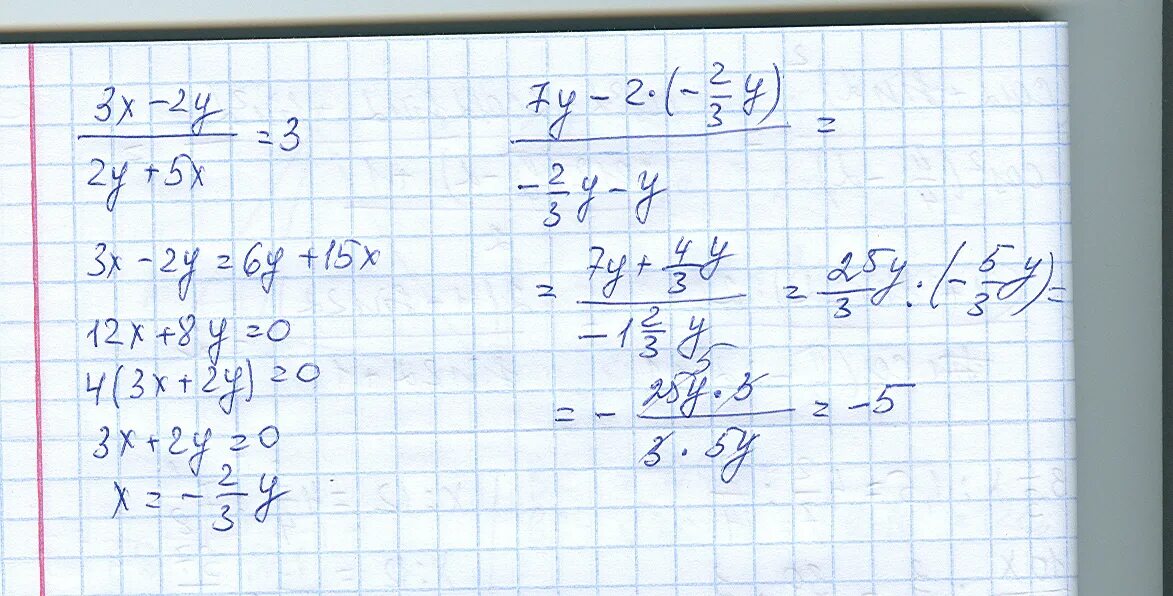 (3x - 2y)/(2y + 5x) = 3
3x - 2y = 6y + 15x
12x + 8y = 0
4(3x + 2y) = 0
3x + 2y = 0
x = - 2/3 y
(7y - 2·(- 2/3 y))/(- 2/3 y - y) =
= (7y + 4/3 y)/(- 1 2/3 y) = 25/3 y : (- 5/3 y) =
= - (25y · 3)/(3 · 5y) = -5